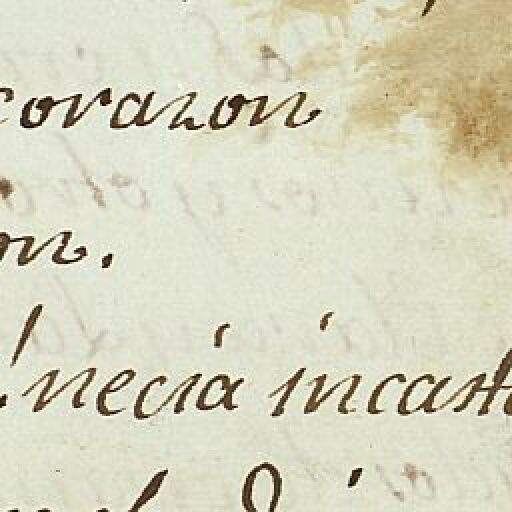 corazon
on.
! necia incasta